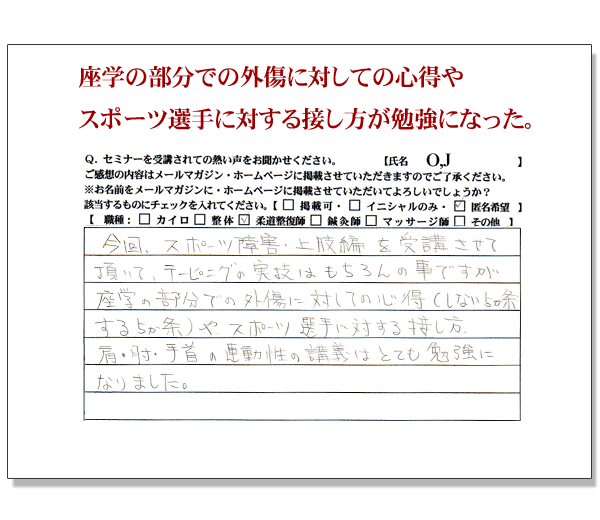 座学の部分での外傷に対しての心得や
スポーツ選手に対する接し方が勉強になった。
Q. セミナーを受講されての熱い声をお聞かせください。 【氏名 O,J 】
ご感想の内容はメールマガジン・ホームページに掲載させていただきますのでご了承ください。
※お名前をメールマガジンに・ホームページに掲載させていただいてよろしいでしょうか？
該当するものにチェックを入れてください。【 □ 掲載可・ □ イニシャルのみ・ ☑ 匿名希望 】
【 職種： □ カイロ □ 整体 ☑ 柔道整復師 □ 鍼灸師 □ マッサージ師 □ その他 】
今回、スポーツ障害・上肢編を受講させて
頂いて、テーピングの実技はもちろんの事ですが
座学の部分での外傷に対しての心得(しない5か条
する5か条)や、スポーツ選手に対する接し方、
肩・肘・手首の運動性の講義はとても勉強に
なりました。